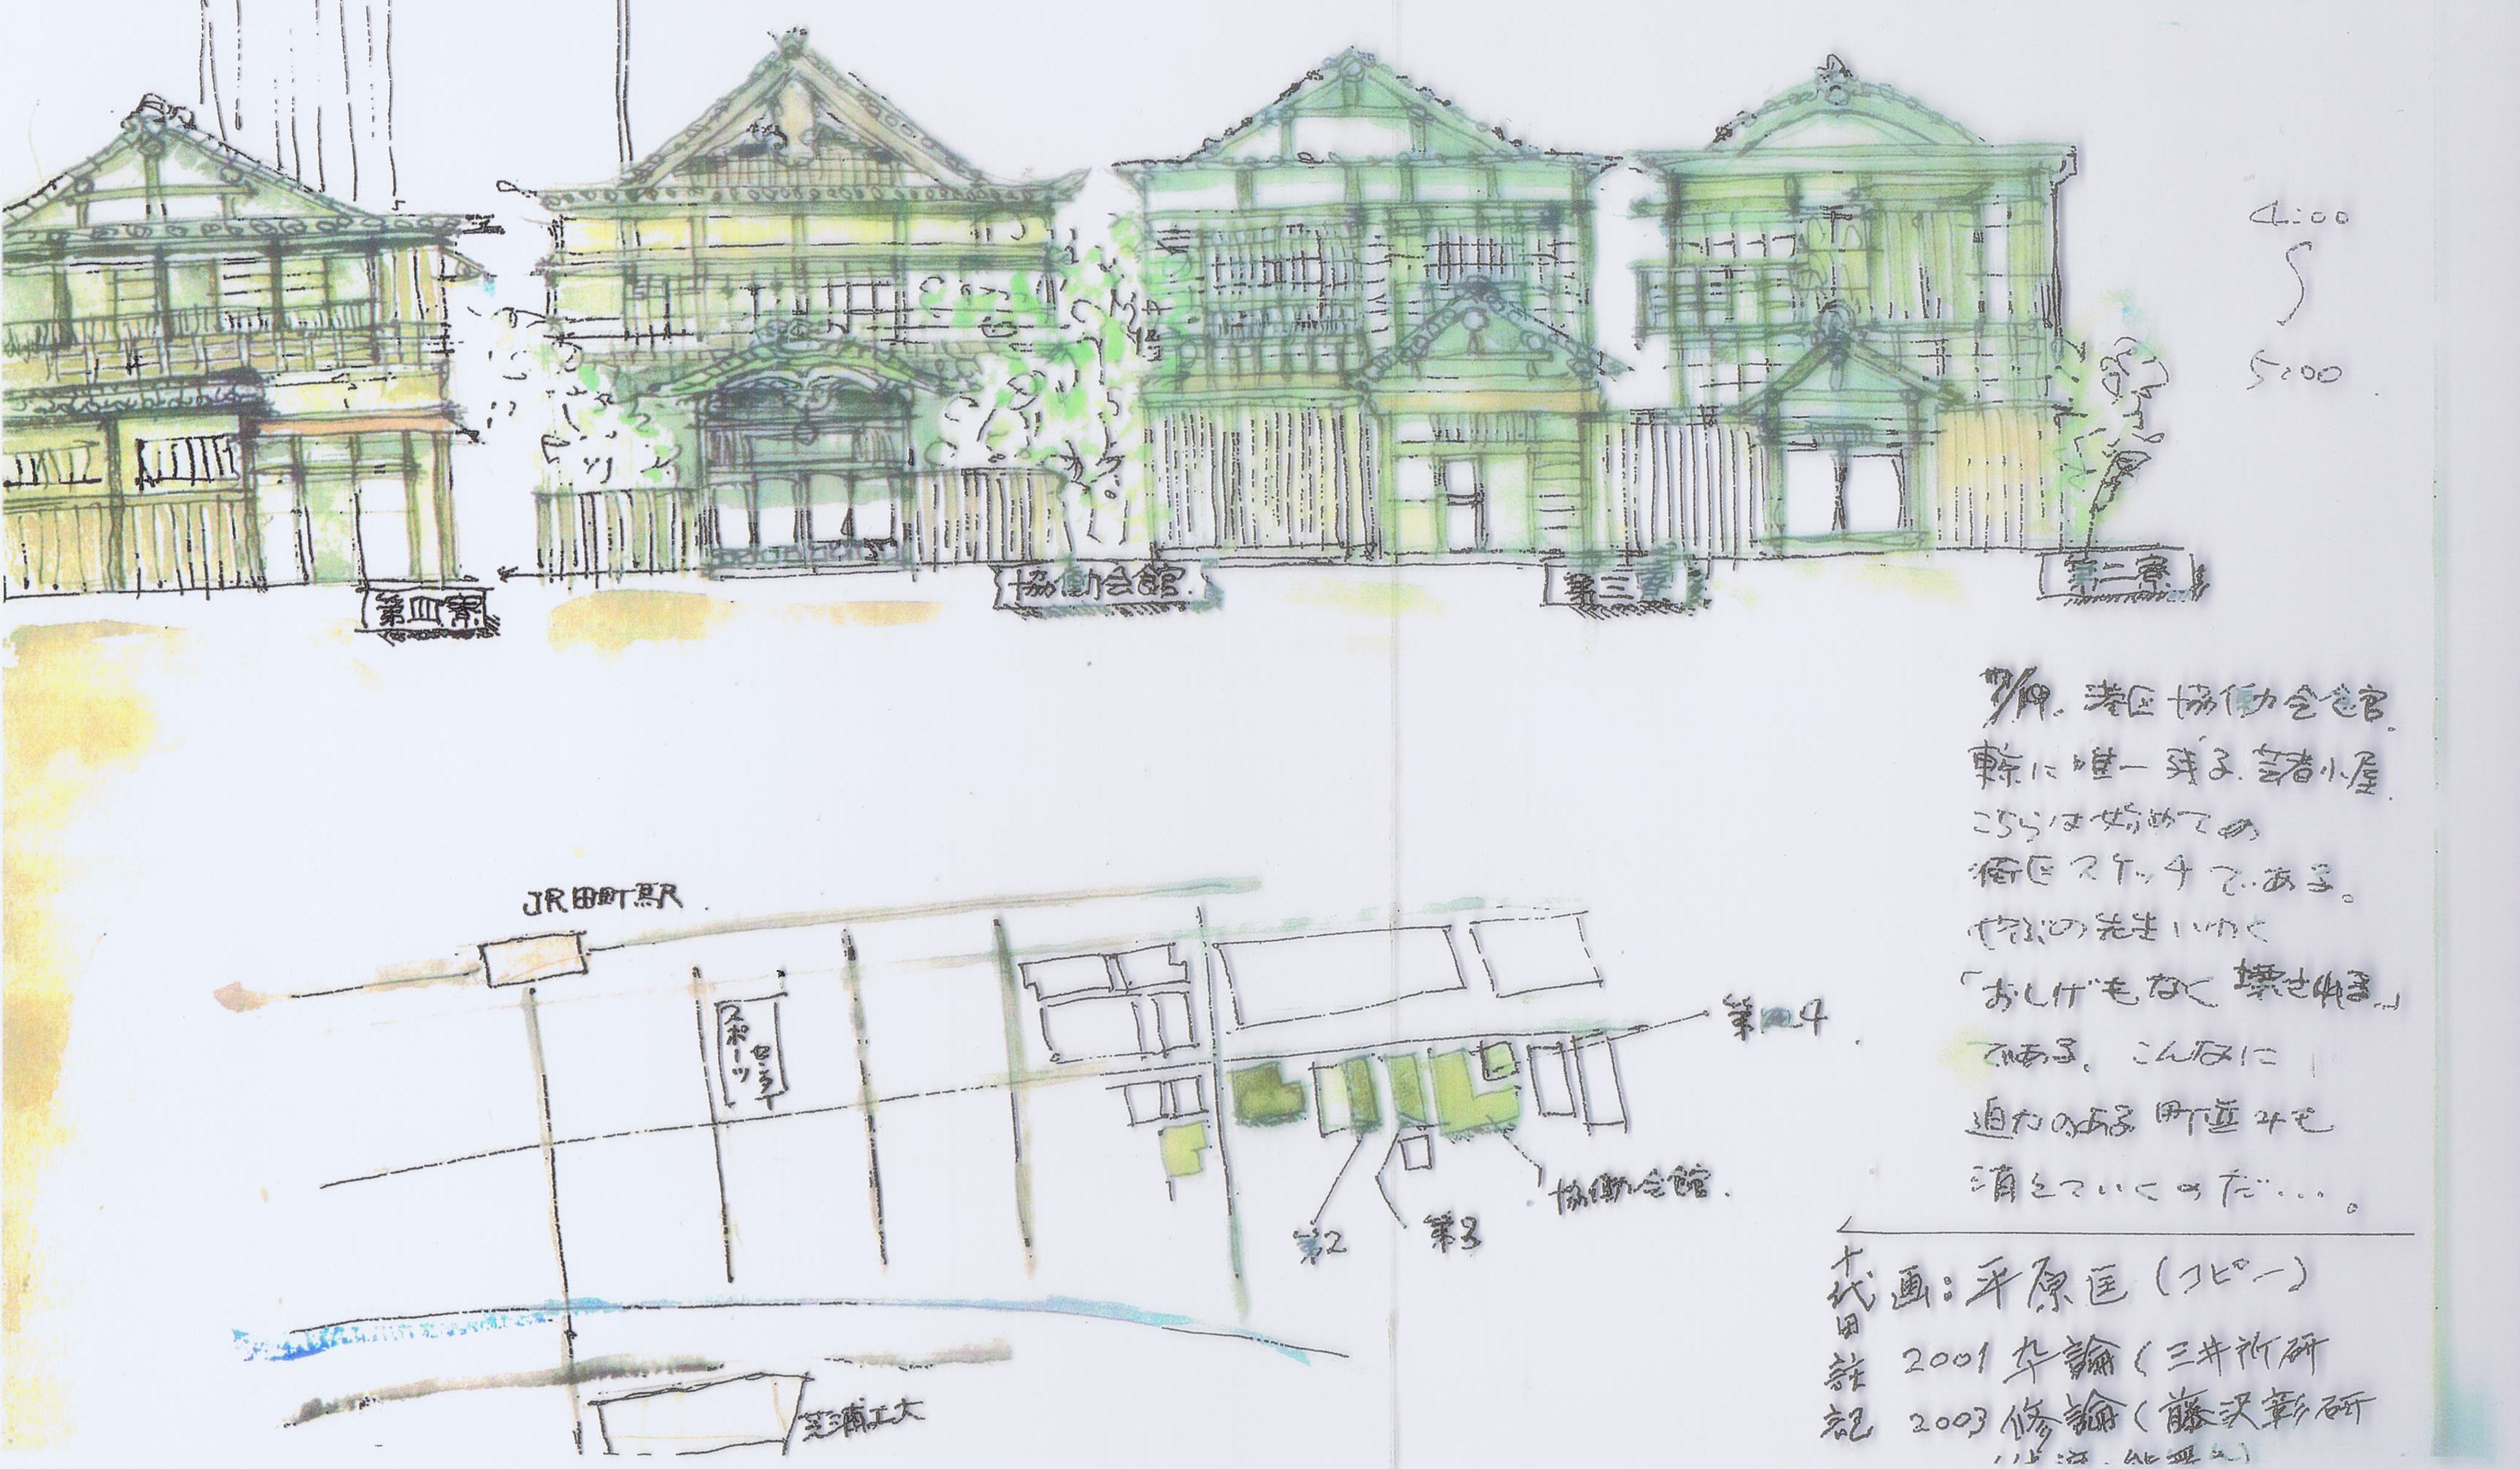 4:00
〜
5:00
第四寮
協働会館
第三寮
第二寮
7/19. 港区協働会館
東京に唯一残る.芸者小屋.
こちらは始めての
街区スケッチである。
やぶの先生いわく
「おしげもなく壊される」
である. こんなに
迫力のある町並みも
消えていくのだ…。
JR田町駅.
スポーツ
センター
第四4.
協働会館.
第2
第3
芝浦工大
千代田註記
画:平原匡(コピー)
2001 卒論(三井所研
2003 修論(藤沢彰研